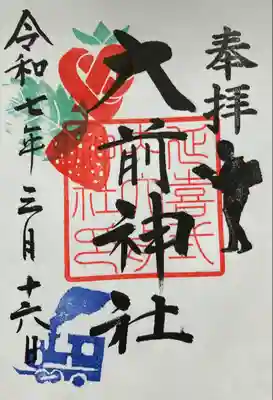 奉拝
大前神社
延喜式
令和七年三月十六日